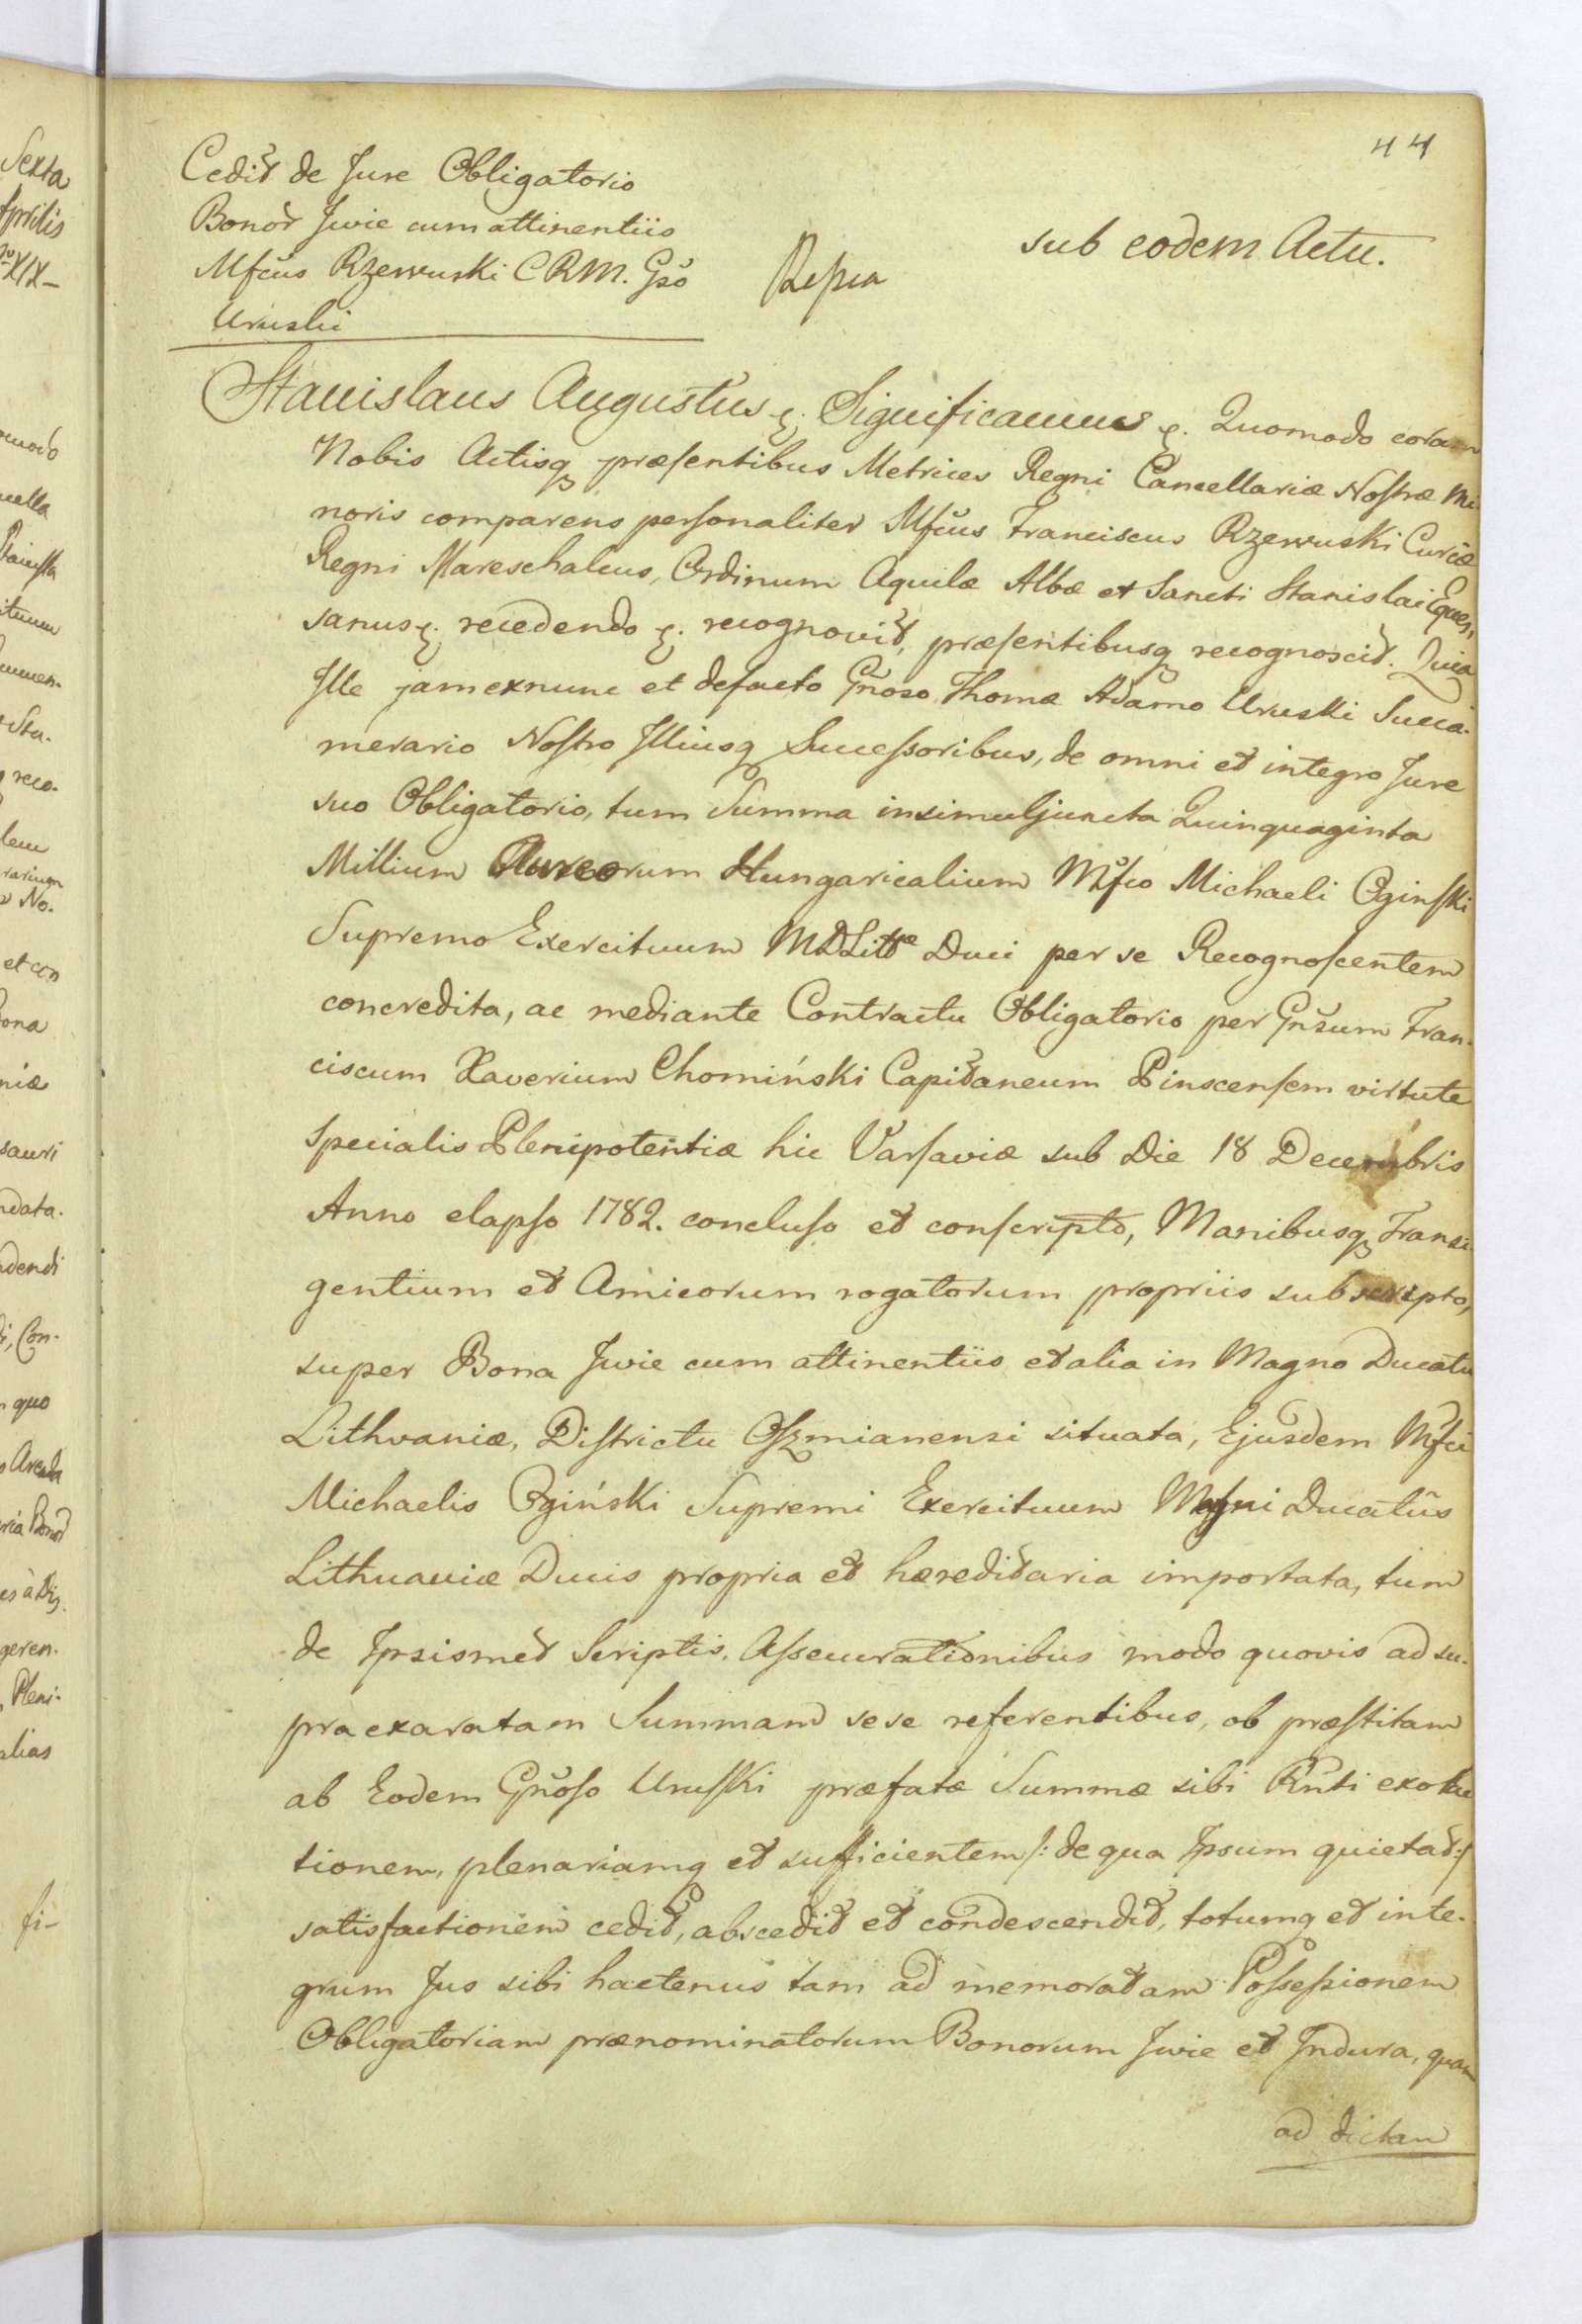 44
Cedit de Jure Obligatorio
Bonor Jwie cum attinentiis
Mfcus Rzewuski C R M. Gso
Uruski
sub eodem Actu.
Stanislaus Augustus ꝛ. Significamus ꝛ. Quomodo coram
Nobis Actisq præsentibus Metrices Regni Cancellariæ Nostræ Mi-
noris comparens personaliter Mfcus Franciscus Rzewuski Curiæ
Regni Mareschalcus, Ordinum Aquilæ Albæ et Sancti Stanislai Eques,
sanus ꝛ. recedendo ꝛ. recognovit, præsentibusq recognoscit. Quia
Ille jam exnunc et defacto Gnoso Thomæ Adamo Uruski Succa-
merario Nostro Illiusq Successoribus, de omni et integro Jure
suo Obligatorio, tum Summa insimul juncta Quinquaginta
Millium Aureorum Hungaricalium Mfco Michaeli Oginski
Supremo Exercituum MDLittæ Duci per se Recognoscentem
concredita, ac mediante Contractu Obligatorio per Gnsum Fran-
ciscum Xaverium Chomiński Capitaneum Pinscensem virtute
specialis Plenipotentiæ hic Varsaviæ sub Die 18 Decembris
Anno elapso 1782. concluso et conscripto, Manibusq Transi-
gentium et Amicorum rogatorum propriis subscripto,
super Bona Jwie cum attinentiis et alia in Magno Ducatu
Lithvaniæ, Districtu Oszmianensi situata, Ejusdem Mfci
Michaelis Ogiński Supremi Exercituum Magni Ducatûs
Lithuaniæ Ducis propria et hæreditaria importata, tum
de Ipsismet Scriptis, Assecurationibus modo quovis ad su-
pra exaratam Summam sese referentibus, ob præstitam
ab Eodem Gnoso Uruski præfatæ Summæ sibi Rnti exolu
tionem, plenariamq et sufficientem /: de qua Ipsum quietat :/
satisfactionem cedit, abscedit et condescendit, totumq et inte-
grum Jus sibi hactenus tam ad memoratam Possessionem
Obligatoriam prænominatorum Bonorum Jwie et Indura, quam
ad dictam